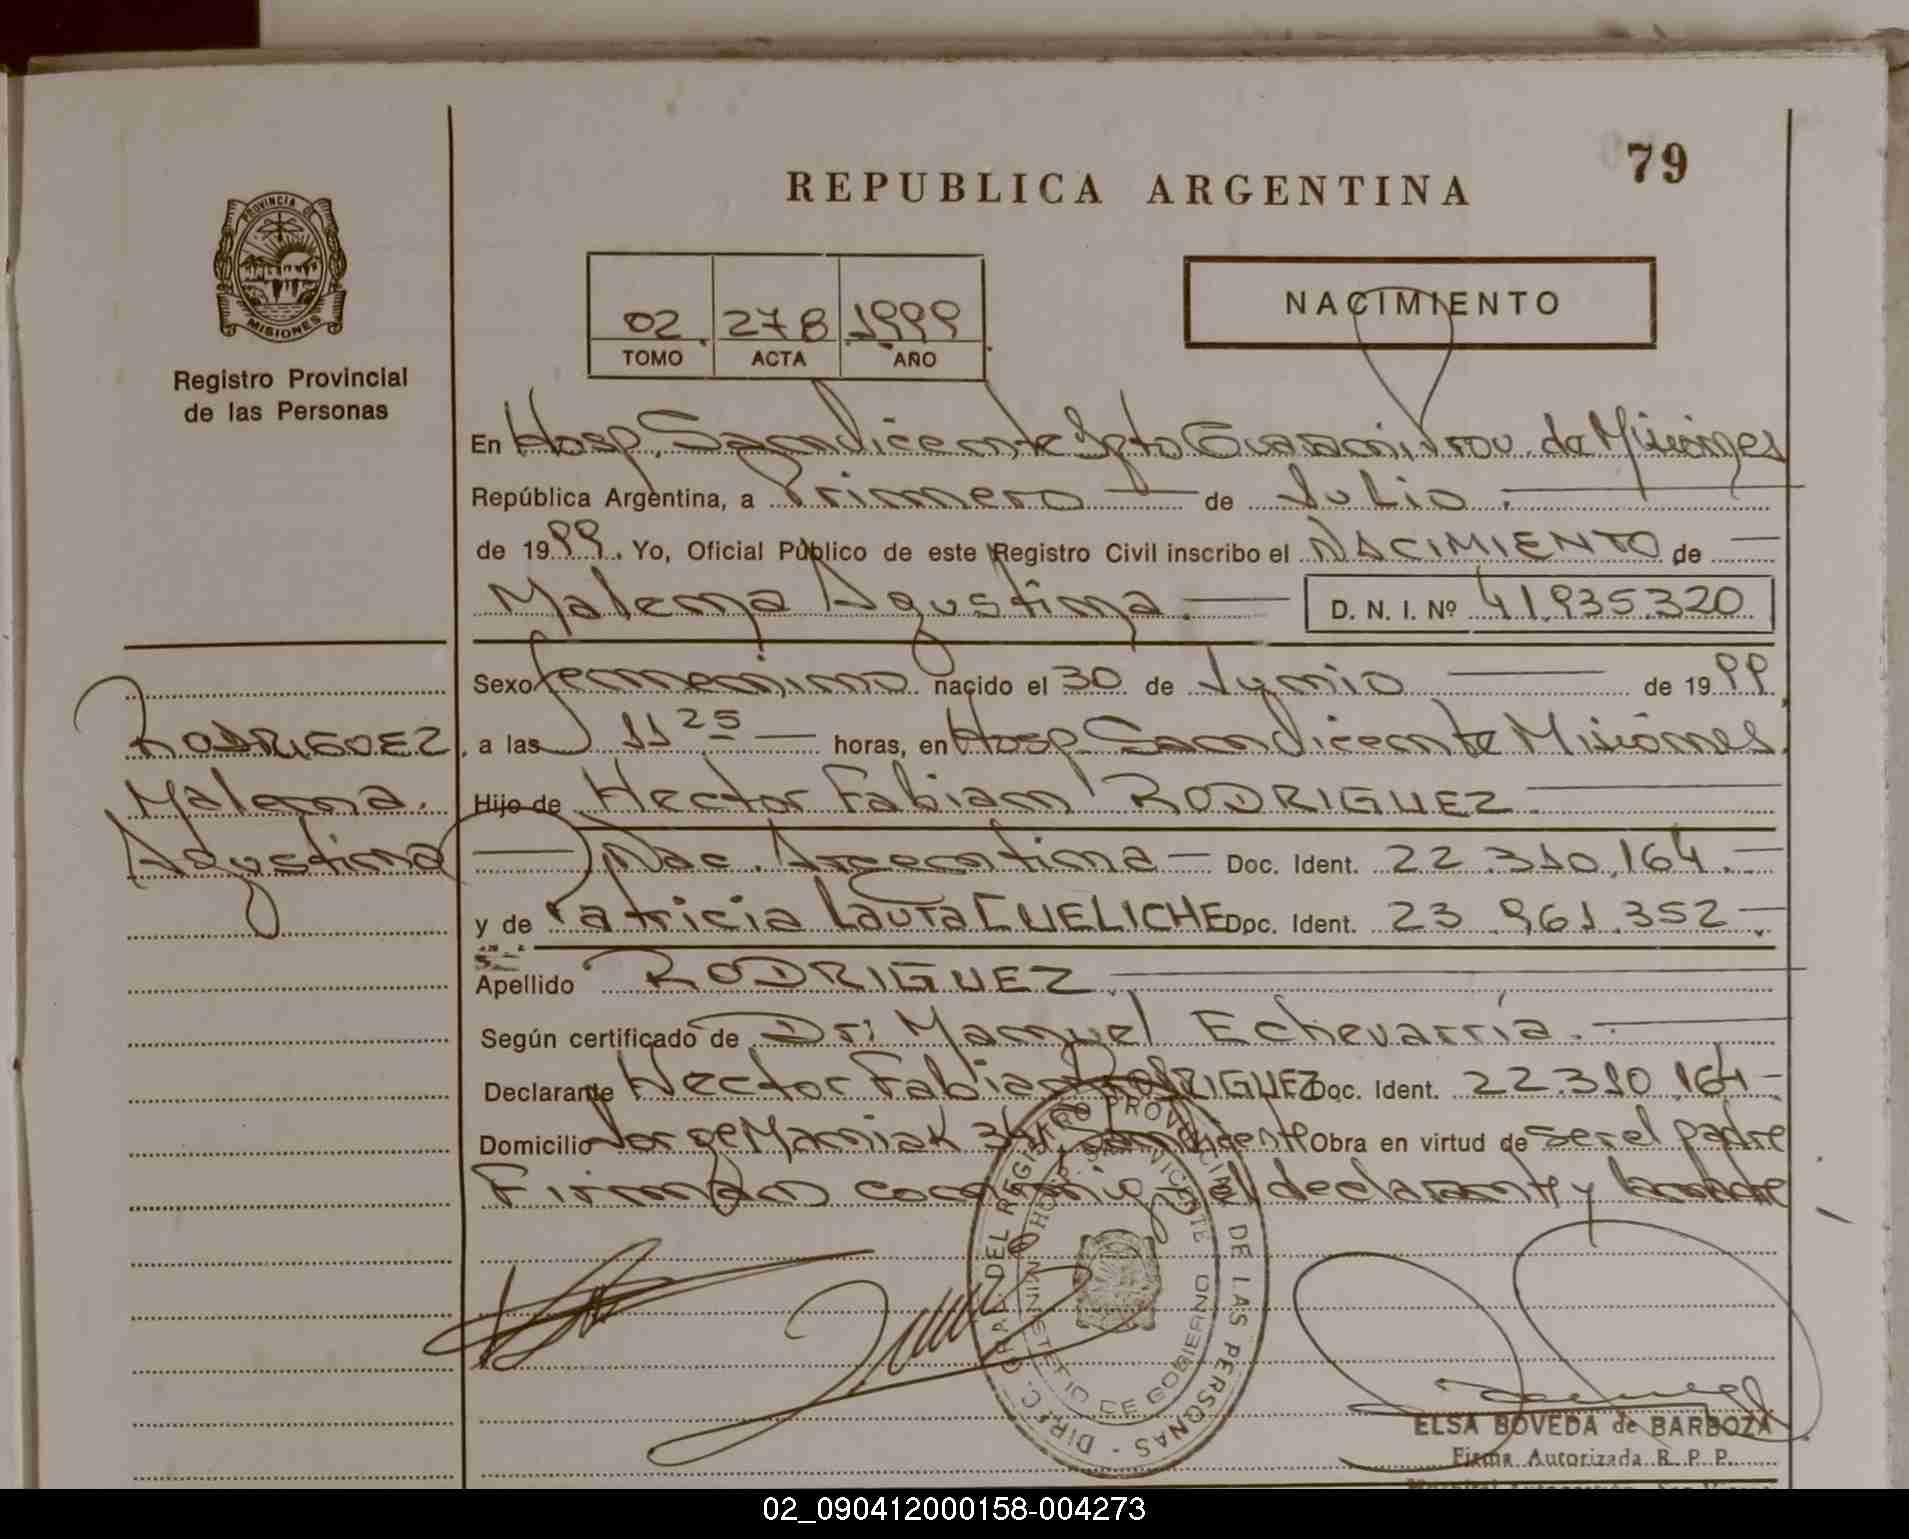 79
REPUBLICA ARGENTINA
PROVINCIA DE
MISIONES
Registro Provincial
de las Personas
02 278 1999
TOMO ACTA AÑO
NACIMIENTO
En Hosp. San Vicente Dpto Guaraní Prov. de Misiones
República Argentina, a Primero de Julio
de 1999. Yo, Oficial Público de este Registro Civil inscribo el NACIMIENTO de
Malena Agustina. D. N. I. Nº 41.935.320
Sexo femenino nacido el 30 de Junio de 1999
a las 11 25 horas, en Hosp San Vicente Misiones.
Hijo de Hector Fabian RODRIGUEZ
Nac. Argentina Doc. Ident. 22.310.164.
y de Patricia Laura CUELICHE Doc. Ident. 23.961.352
Apellido RODRIGUEZ
Según certificado de Dr: Manuel Echevarría.
Declarante Hector Fabian RODRIGUEZ Doc. Ident. 22.310.164
Domicilio Jorge Maniak San Vicente Obra en virtud de ser el padre
Firman conmigo el declarante y
RODRIGUEZ
Malena.
Agustina
DIREC. GRAL. DEL REGISTRO PROVINCIAL DE LAS PERSONAS
MINISTERIO DE GOBIERNO
HOSP. SAN VICENTE
ELSA BOVEDA de BARBOZA
Firma Autorizada R. P. P.
02_090412000158-004273